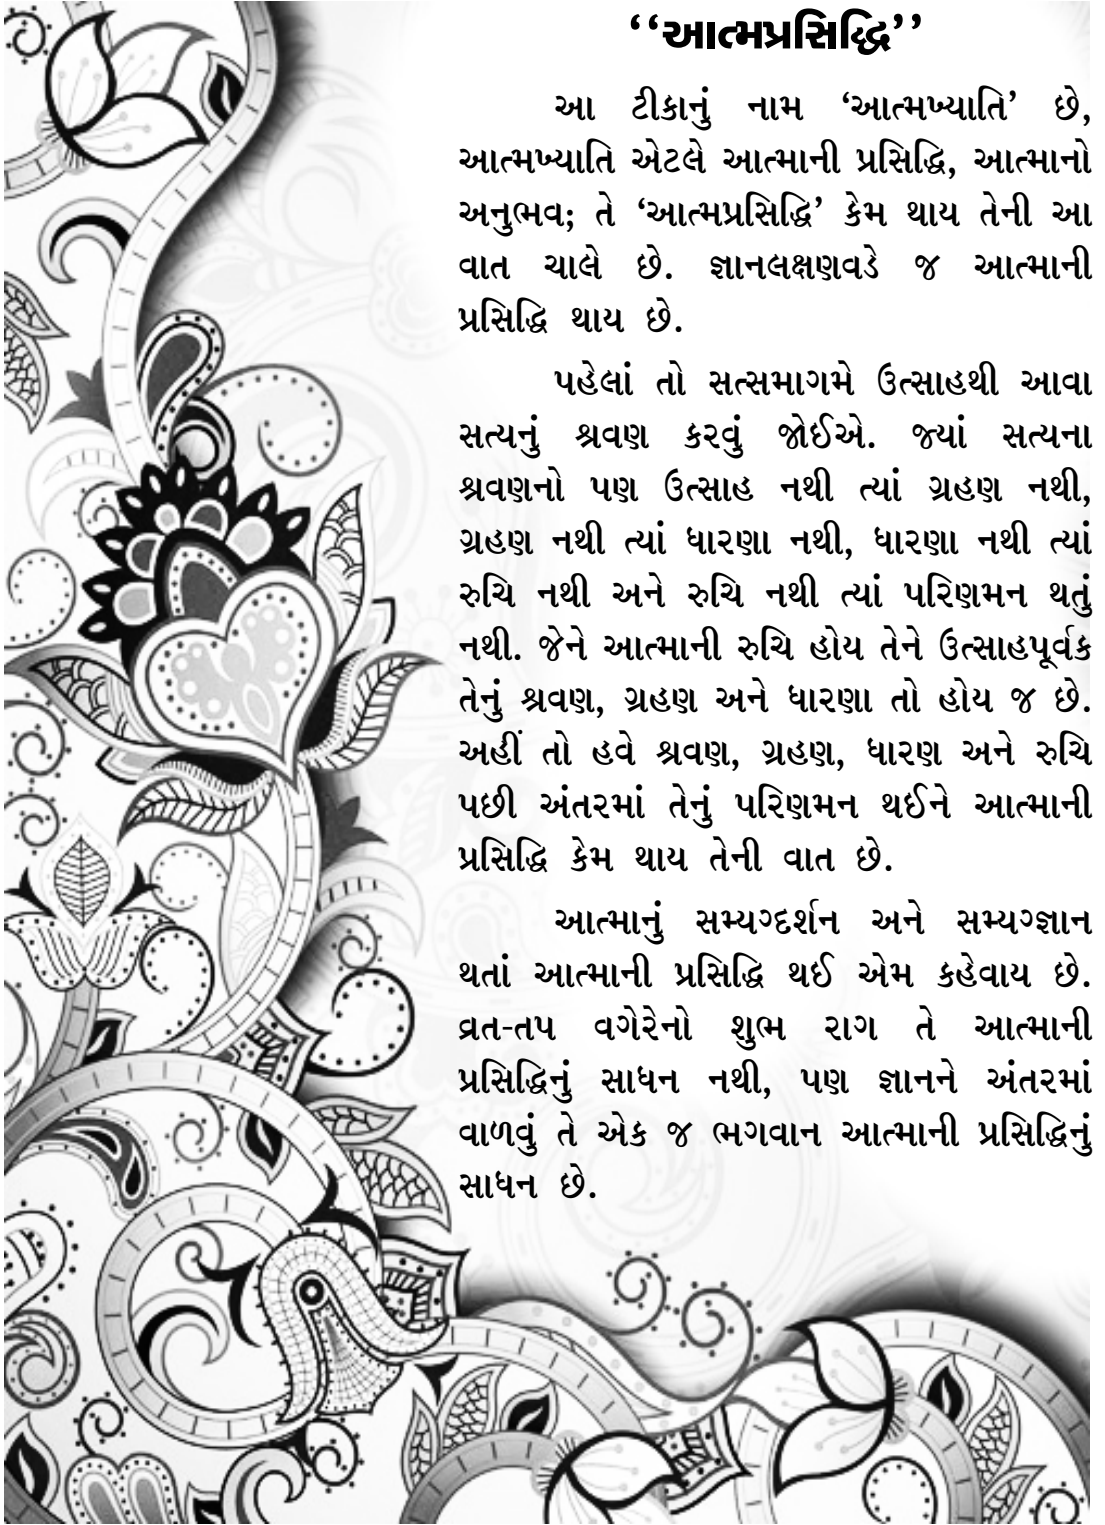 ‘‘આત્મપ્રસિદ્ધિ’’
આ ટીકાનું નામ ‘આત્મખ્યાતિ’ છે,
આત્મખ્યાતિ એટલે આત્માની પ્રસિદ્ધિ, આત્માનો
અનુભવ; તે ‘આત્મપ્રસિદ્ધિ’ કેમ થાય તેની આ
વાત ચાલે છે. જ્ઞાનલક્ષણવડે જ આત્માની
પ્રસિદ્ધિ થાય છે.
પહેલાં તો સત્સમાગમે ઉત્સાહથી આવા
સત્યનું શ્રવણ કરવું જોઈએ. જ્યાં સત્યના
શ્રવણનો પણ ઉત્સાહ નથી ત્યાં ગ્રહણ નથી,
ગ્રહણ નથી ત્યાં ધારણા નથી, ધારણા નથી ત્યાં
રુચિ નથી અને રુચિ નથી ત્યાં પરિણમન થતું
નથી. જેને આત્માની રુચિ હોય તેને ઉત્સાહપૂર્વક
તેનું શ્રવણ, ગ્રહણ અને ધારણા તો હોય જ છે.
અહીં તો હવે શ્રવણ, ગ્રહણ, ધારણ અને રુચિ
પછી અંતરમાં તેનું પરિણમન થઈને આત્માની
પ્રસિદ્ધિ કેમ થાય તેની વાત છે.
આત્માનું સમ્યગ્દર્શન અને સમ્યગ્જ્ઞાન
થતાં આત્માની પ્રસિદ્ધિ થઈ એમ કહેવાય છે.
વ્રત-તપ વગેરેનો શુભ રાગ તે આત્માની
પ્રસિદ્ધિનું સાધન નથી, પણ જ્ઞાનને અંતરમાં
વાળવું તે એક જ ભગવાન આત્માની પ્રસિદ્ધિનું
સાધન છે.